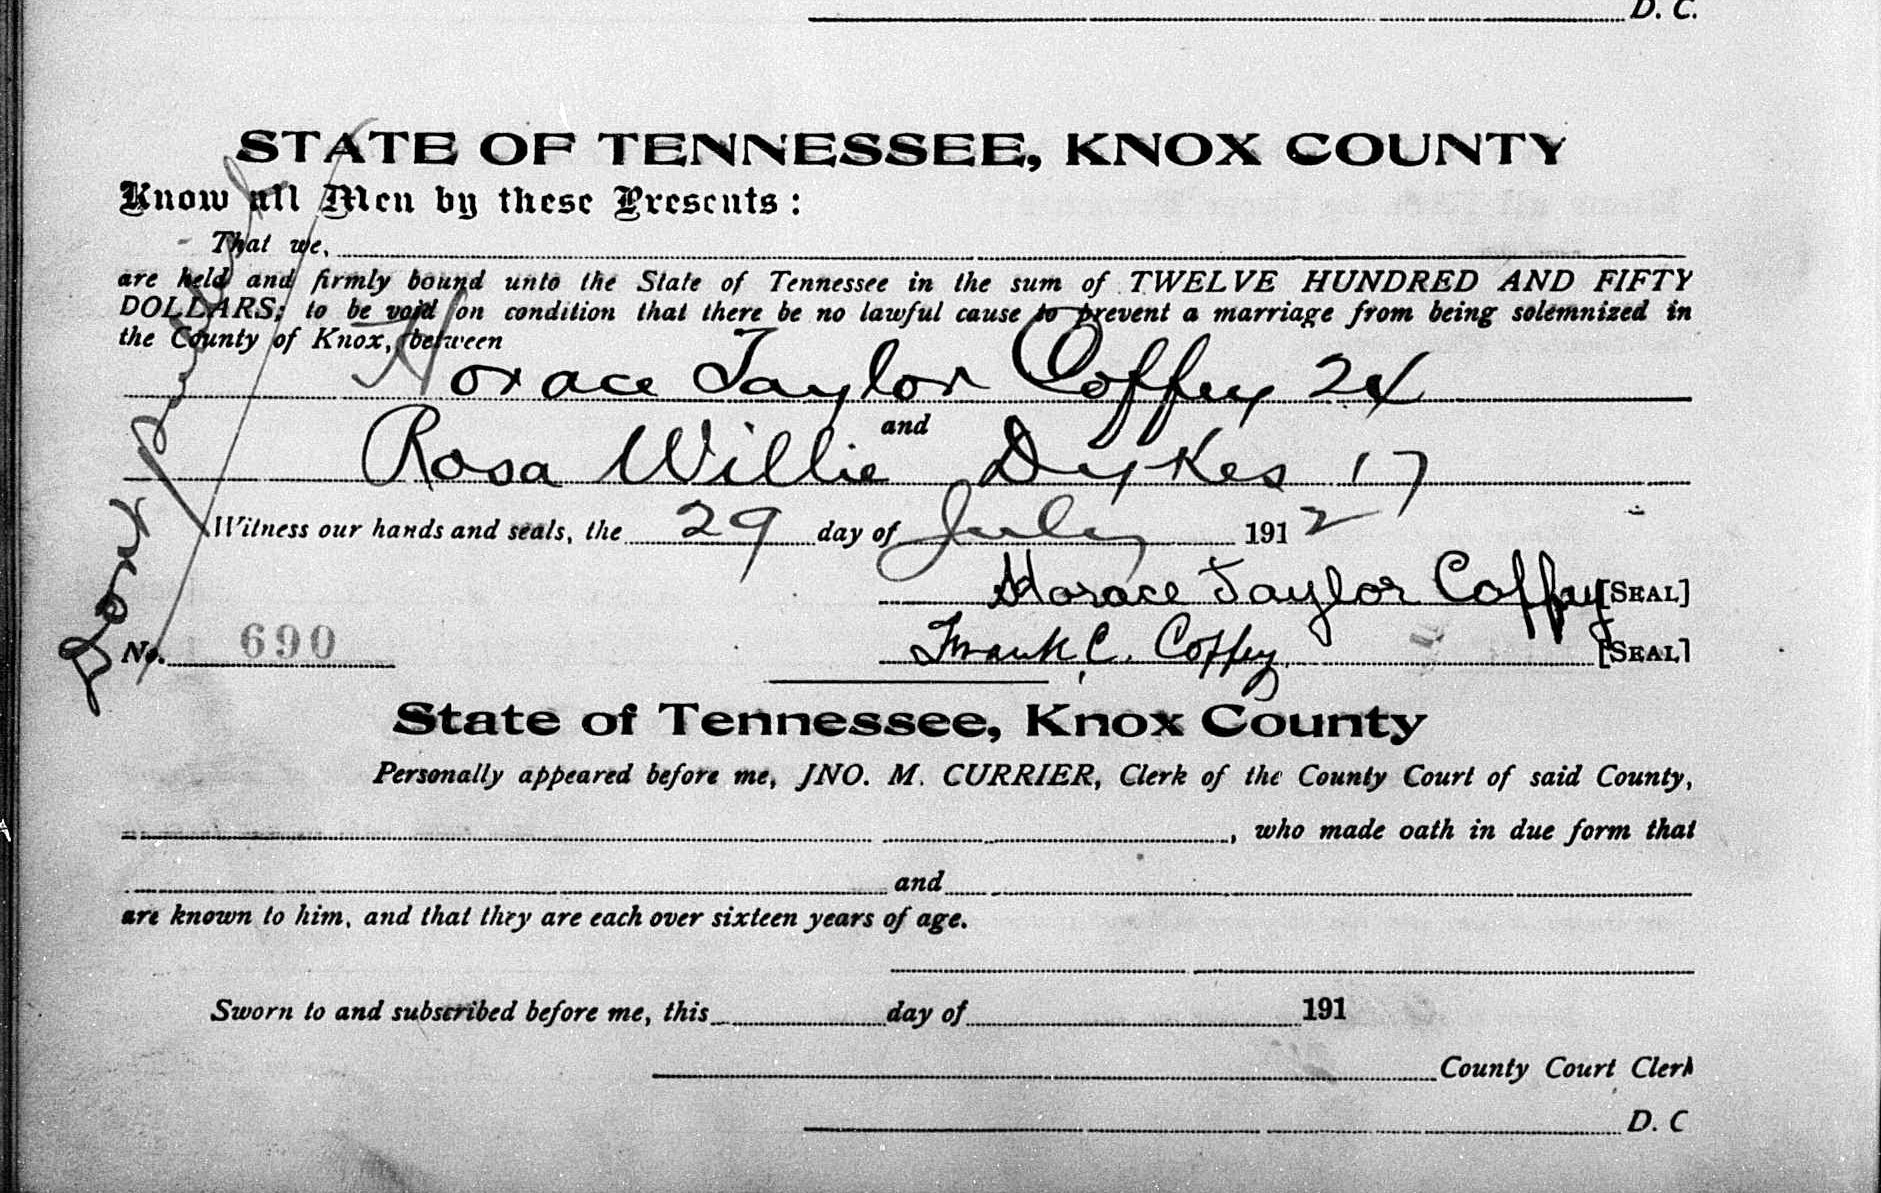 D. C.
STATE OF TENNESSEE, KNOX COUNTY
Know all Men by these Presents:
That we,
are held and firmly bound unto the State of Tennessee in the sum of TWELVE HUNDRED AND FIFTY
DOLLARS; to be void on condition that there be no lawful cause to prevent a marriage from being solemnized in
the County of Knox, between
Horace Taylor Coffey 24
and
Rosa Willie Dykes 17
Witness our hands and seals, the 29 day of July 1912
Horace Taylor Coffey [SEAL]
No. 690 Frank C. Coffey [SEAL]
State of Tennessee, Knox County
Personally appeared before me, JNO. M. CURRIER, Clerk of the County Court of said County,
, who made oath in due form that
and
are known to him, and that they are each over sixteen years of age.
Sworn to and subscribed before me, this day of 191
County Court Clerk
D. C